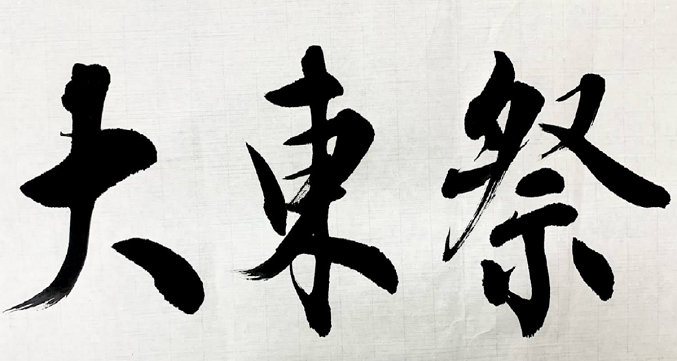 大東祭